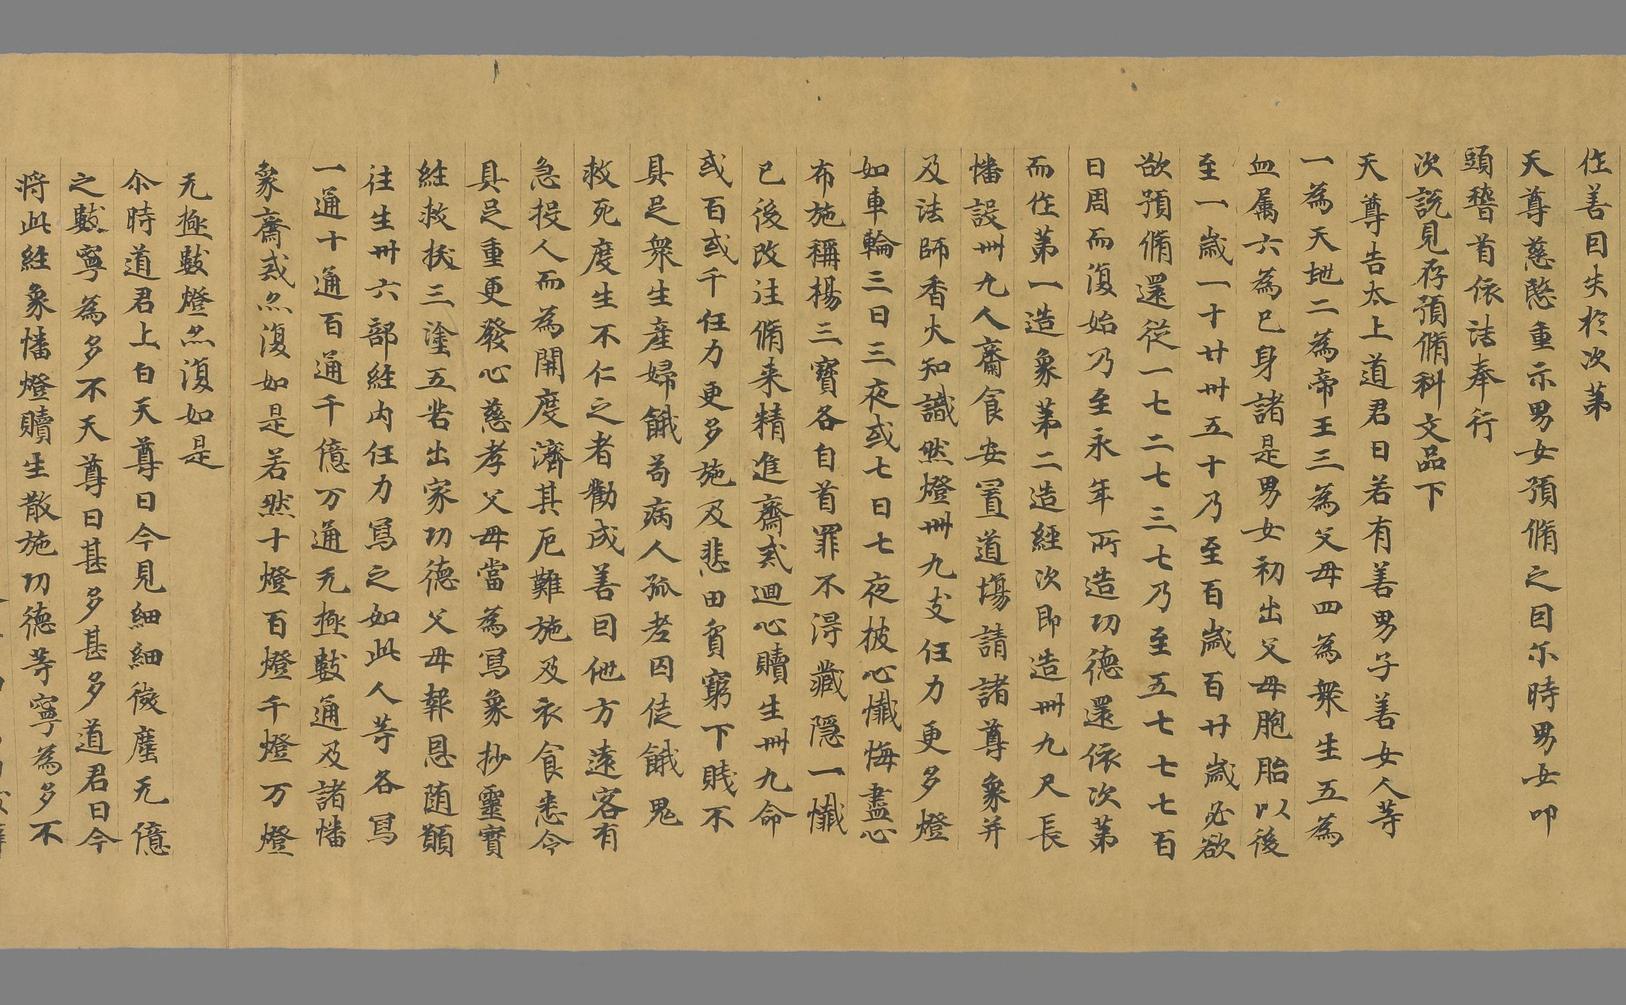 作善因失於次第
天尊慈愍重示男女預脩之因尔時男女叩
頭稽首依法奉行
次說見存預脩科文品下
天尊告太上道君曰若有善男子善女人等
一為天地二為帝王三為父母四為衆生五為
血属六為已身諸是男女初出父母胞胎以後
至一歲一十廿卅五十乃至百歲百廿歲必欲
欲預脩還従一七二七三七乃至五七七七百
日周而復始乃至永年所造功德還依次第
而作第一造象第二造經次即造卌九尺長
幡設卌九人齋食安置道塲請諸尊象并
及法師香火知識然燈卌九支任力更多燈
如車輪三日三夜或七日七夜披心懺悔盡心
布施稱楊三寶各自首罪不淂藏隱一懺
已後改往脩来精進齋戒迴心贖生卌九命
或百或千任力更多施及悲田貧窮下賎不
具足衆生產婦餓苟病人孤老囚徒餓鬼
救死度生不仁之者勸成善因他方遠客有
急投人而為開度濟其厄難施及衣食悉令
具足重更發心慈孝父母當為寫象抄靈寶
経救抜三塗五苦出家功德父母報恩随願
往生卅六部経内任力寫之如此人等各寫
一通十通百通千億万通无極數通及諸幡
象齋戒亦復如是若然十燈百燈千燈万燈
无極數燈亦復如是
尒時道君上白天尊曰今見細細微塵无億
之數寧為多不天尊曰甚多甚多道君曰今
將此経象幡燈贖生散施功德等寧為多不